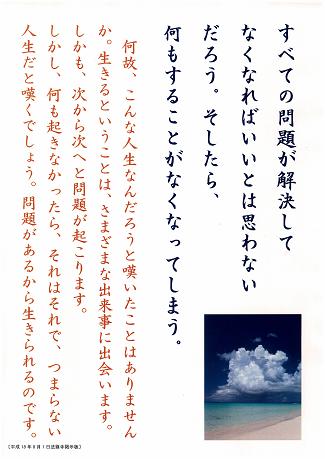 すべての問題が解決して
なくなればいいとは思わない
だろう。そしたら、
何もすることがなくなってしまう。
何故、こんな人生なんだろうと嘆いたことはありません
か。生きるということは、さまざまな出来事に出会います。
しかも、次から次へと問題が起こります。
しかし、何も起きなかったら、それはそれで、つまらない
人生だと嘆くでしょう。問題があるから生きられるのです。